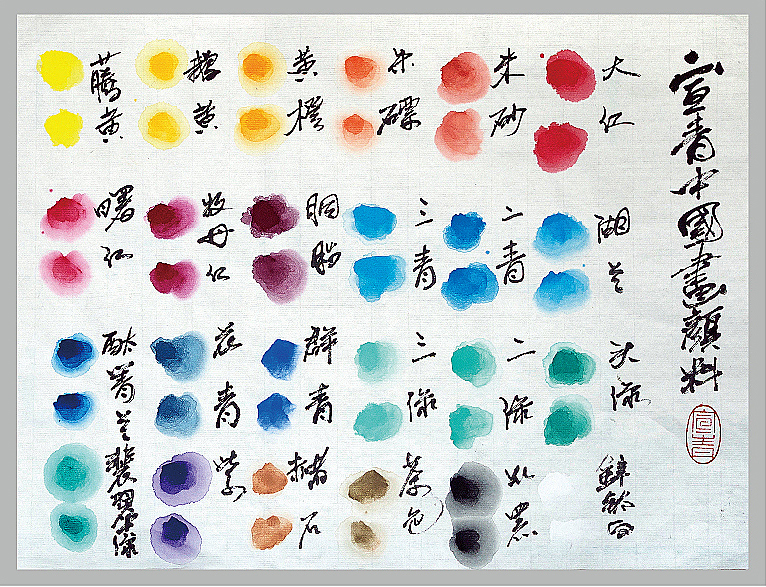 宣青中國畫顏料
宣青
大红
朱砂
朱磦
黄橙
黄
藤黄
湖兰
二青
三青
胭脂
牡丹红
曙红
头绿
二绿
三绿
群青
花青
酞菁兰
锌钛白
黑
茶色
赭石
紫
翠绿